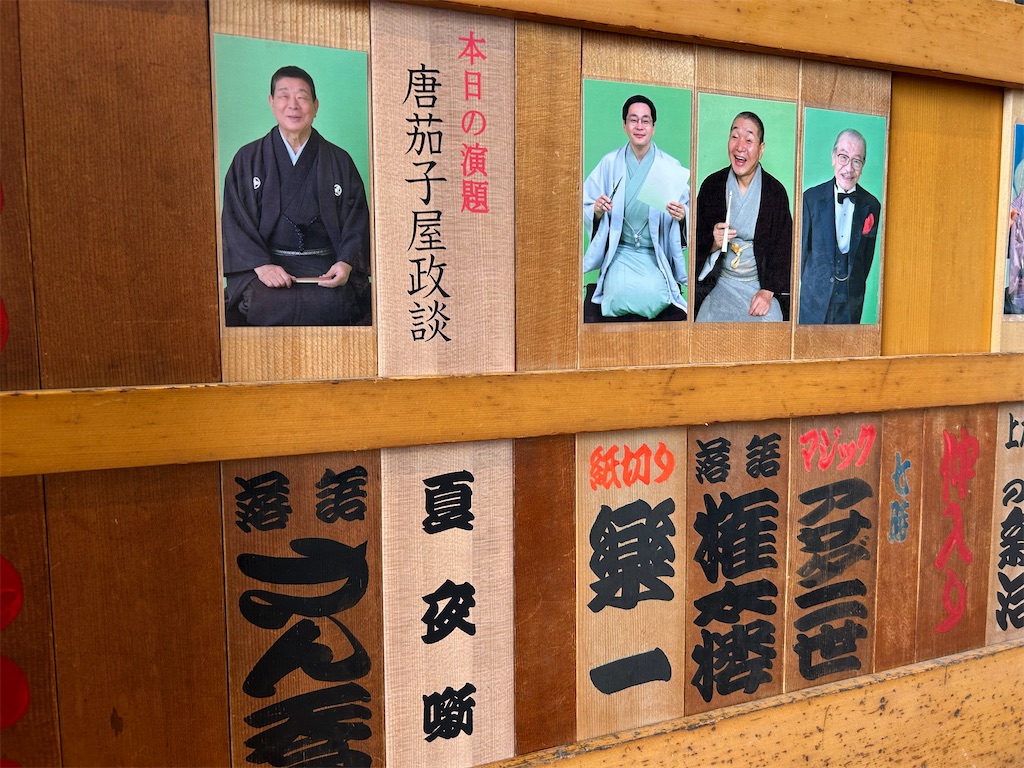 本日の演題
唐茄子屋政談
上
の新治
仲入り
七時
マジック
アサダ二世
落語
権太樓
紙切り
楽一
夏夜噺
落語
さん喬